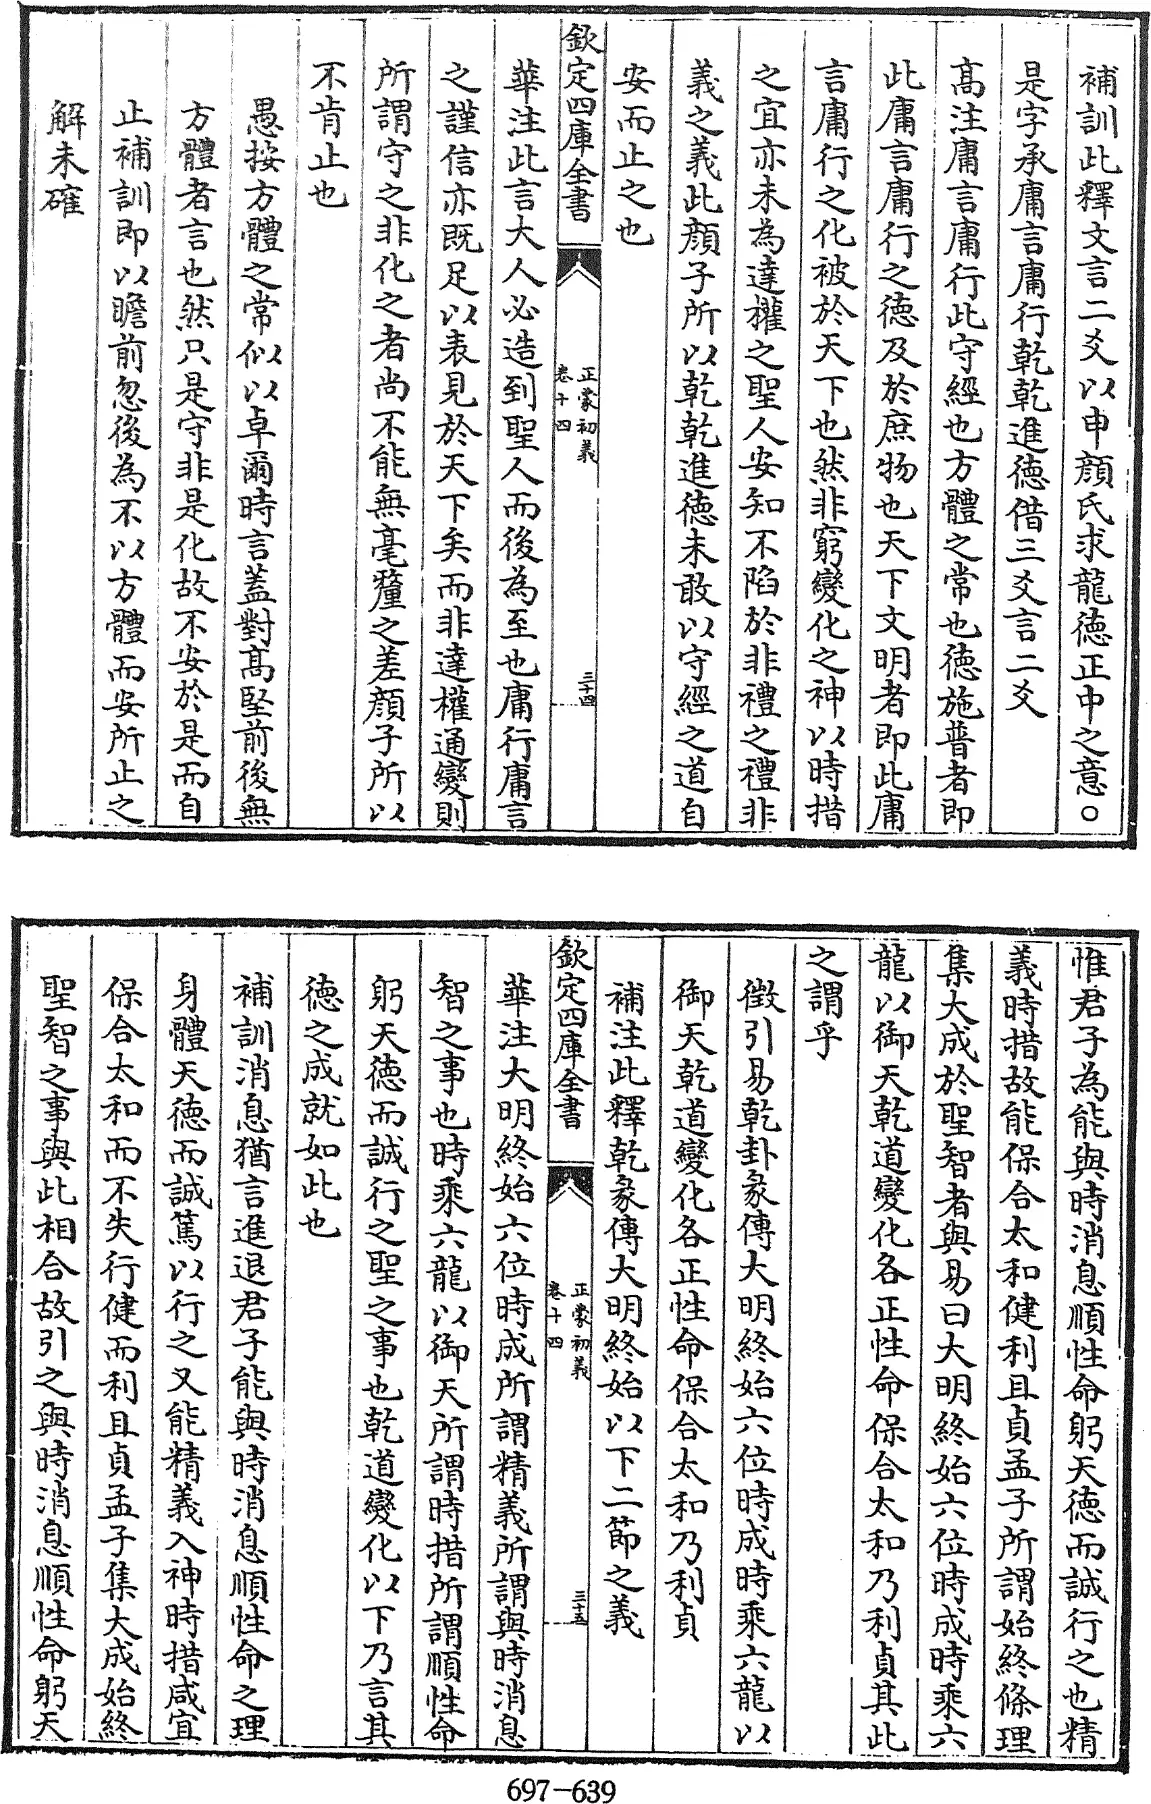 補訓此釋文言二爻以申顔氏求龍徳正中之意○
是字承庸言庸行乾乾進徳借三爻言二爻
髙注庸言庸行此守經也方體之常也徳施普者即
此庸言庸行之徳及於庶物也天下文明者即此庸
言庸行之化被於天下也然非窮變化之神以時措
之宜亦未為達權之聖人安知不陷於非禮之禮非
義之義此顔子所以乾乾進徳未敢以守經之道自
安而止之也
欽定四庫全書
正蒙初義
卷十四
三十四
華注此言大人必造到聖人而後為至也庸行庸言
之謹信亦既足以表見於天下矣而非達權通變則
所謂守之非化之者尚不能無毫釐之差顔子所以
不肯止也
愚按方體之常似以卓爾時言蓋對髙堅前後無
方體者言也然只是守非是化故不安於是而自
止補訓即以瞻前忽後為不以方體而安所止之
解未確
惟君子為能與時消息順性命躬天徳而誠行之也精
義時措故能保合太和健利且貞孟子所謂始終條理
集大成於聖智者與易曰大明終始六位時成時乘六
龍以御天乾道變化各正性命保合太和乃利貞其此
之謂乎
徴引易乾卦彖傳大明終始六位時成時乘六龍以
御天乾道變化各正性命保合太和乃利貞
補注此釋乾彖傳大明終始以下二節之義
欽定四庫全書
正蒙初義
卷十四
三十五
華注大明終始六位時成所謂精義所謂與時消息
智之事也時乘六龍以御天所謂時措所謂順性命
躬天徳而誠行之聖之事也乾道變化以下乃言其
徳之成就如此也
補訓消息猶言進退君子能與時消息順性命之理
身體天徳而誠篤以行之又能精義入神時措咸宜
保合太和而不失行健而利且貞孟子集大成始終
聖智之事與此相合故引之與時消息順性命躬天
697-639